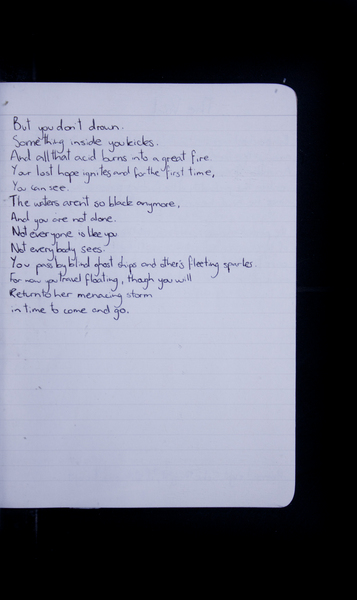 But you don't drown.
Something inside you kicks.
And all that acid burns into a great fire.
Your last hope ignites and for the first time,
You can see.
The waters aren't so black anymore,
And you are not alone.
Not everyone is like you
Not everybody sees.
You pass by blind ghost ships and other's fleeting sparkles.
For now you travel floating, though you will
Return to her menacing storm
in time to come and go.